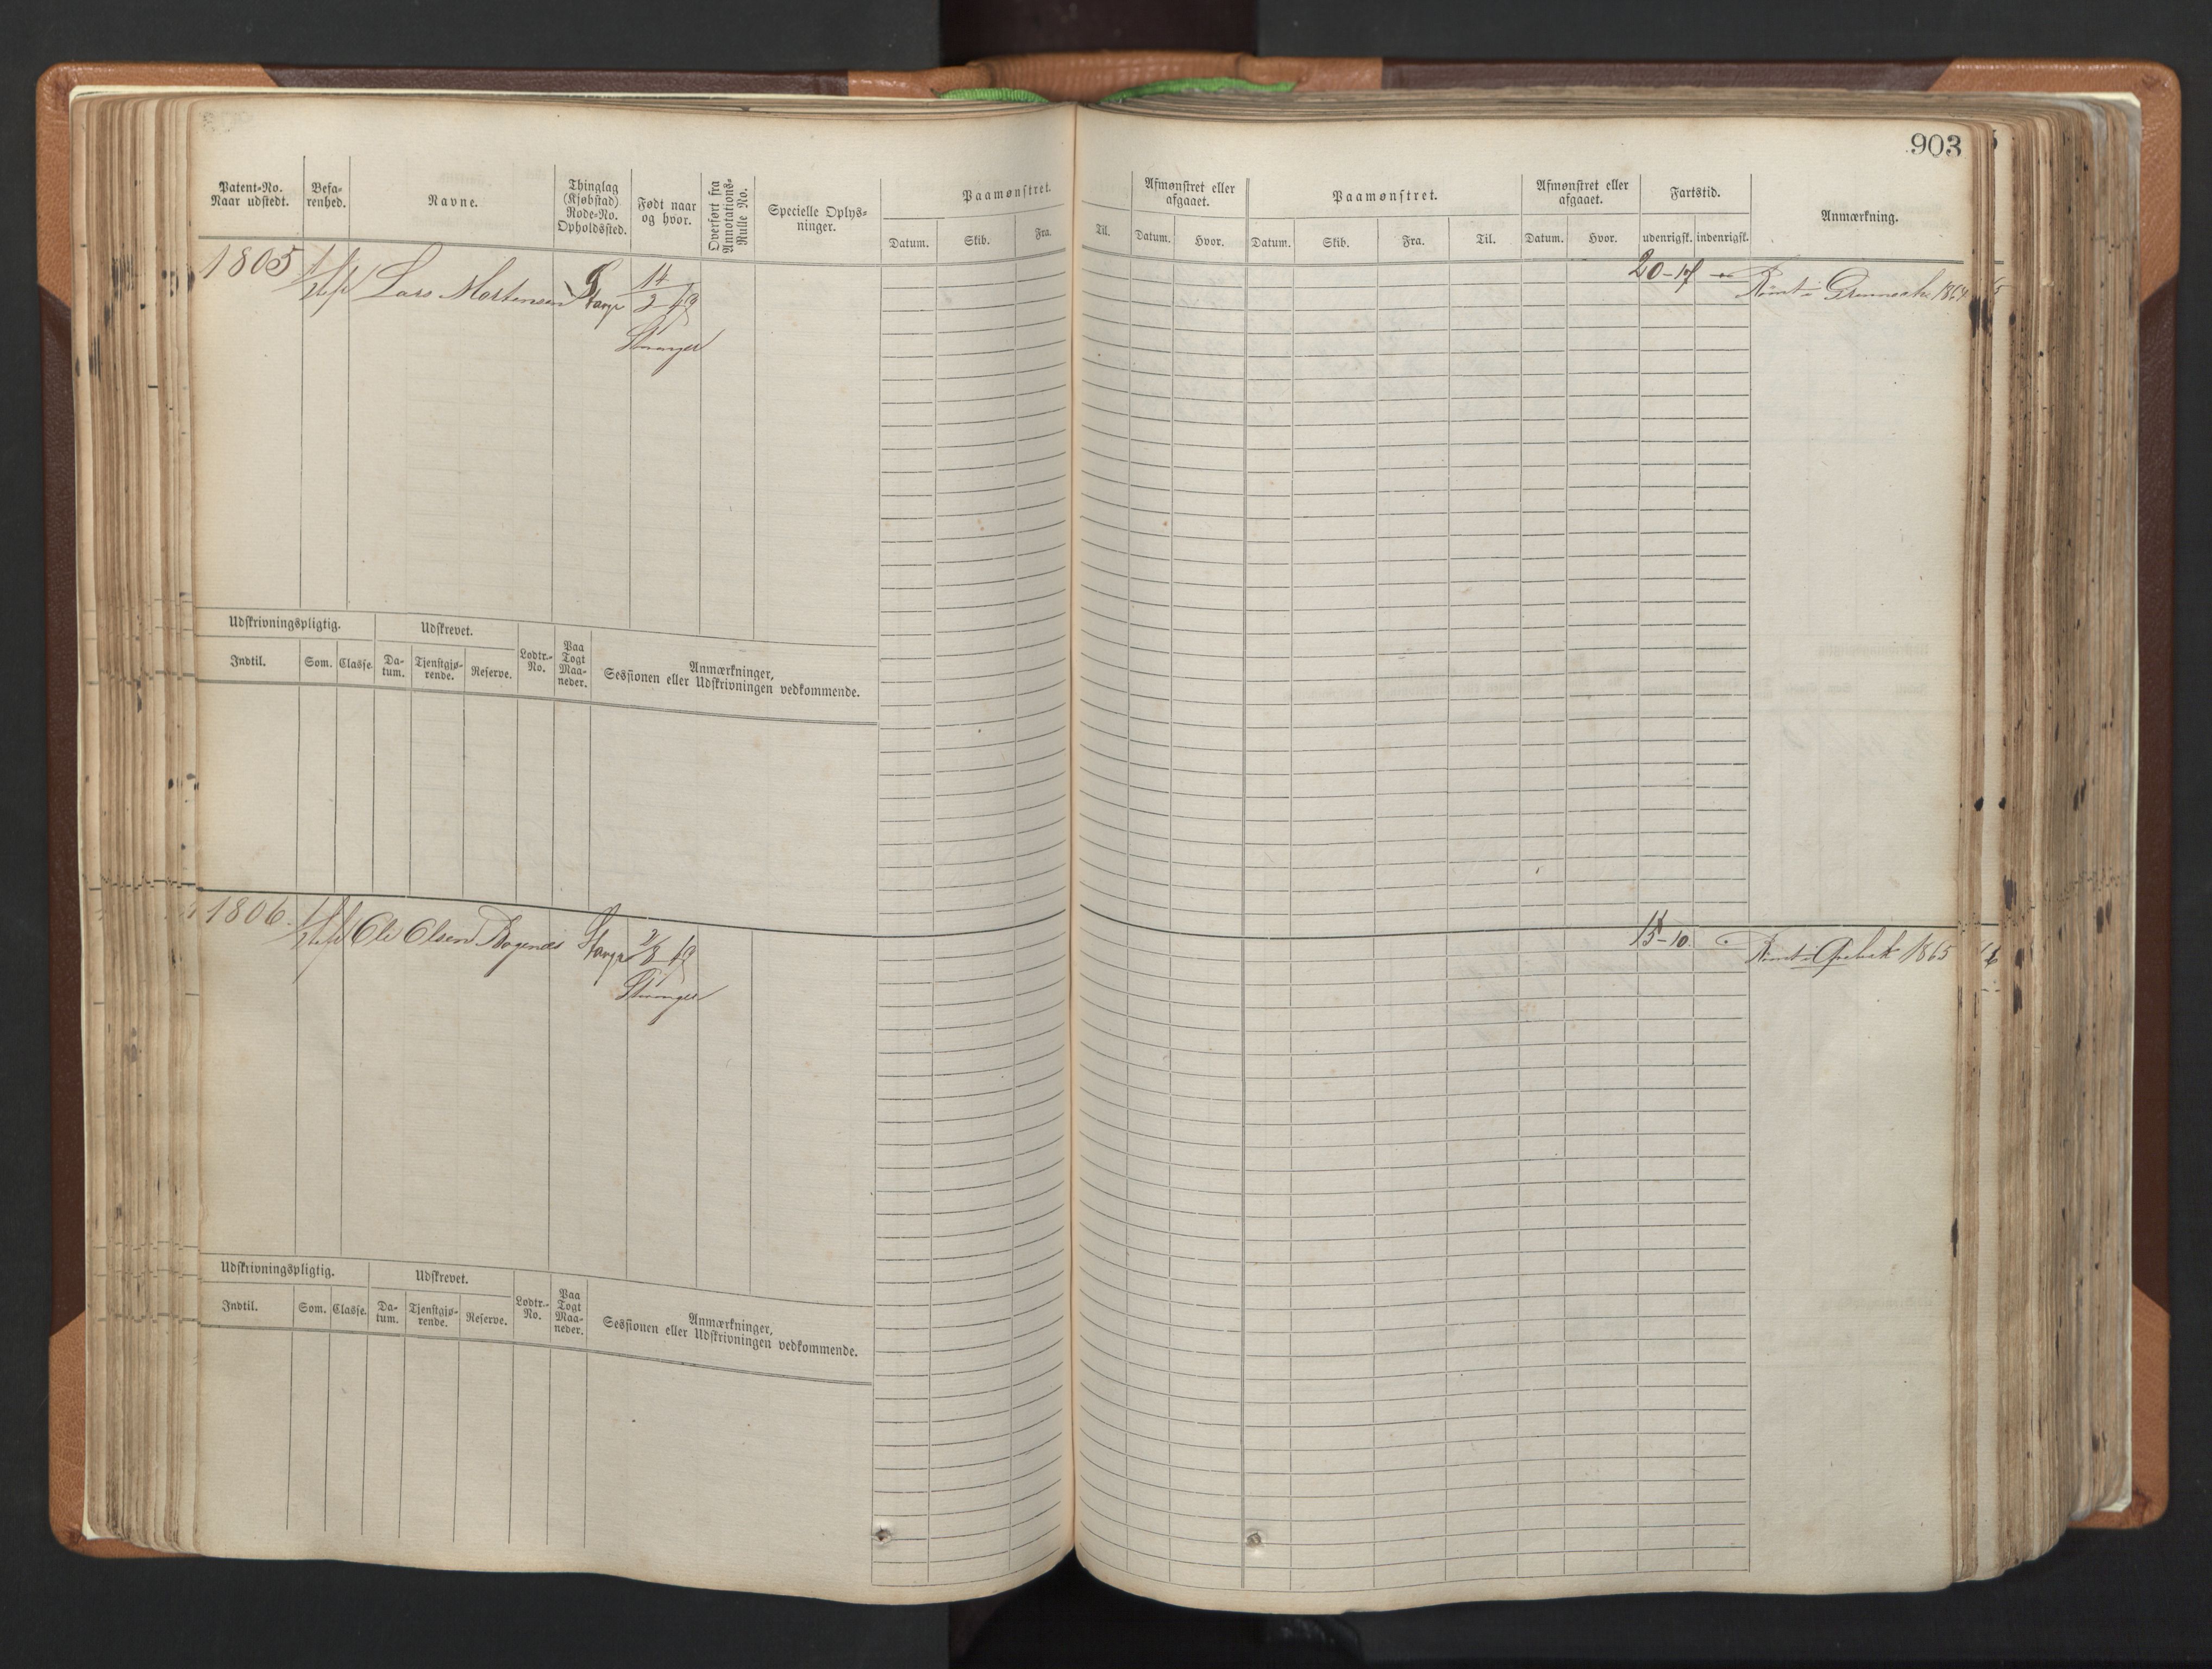 903
Patent-No. Naar udstedt.
Befa-renhed.
Navne.
Thinglag (Kjøbstad) Rode-No. Opholdssted.
Født naar og hvor.
Overført fra Annotations-Rulle No.
Specielle Oplys-ninger.
Paamønstret.
Datum. Skib. Fra. Til.
Afmønstret eller afgaaet.
Datum. Hvor.
Paamønstret.
Datum. Skib. Fra. Til.
Afmønstret eller afgaaet.
Datum. Hvor.
Fartstid.
udenrigsk. indenrigsk.
Anmærkning.
1805 Lars Mortensen Stavgr 14/3 19 20-17
Stavanger
1864
Udskrivningspligtig. Udskrevet.
Indtil. Som. Classe. Da-tum. Tjenstgjø-rende. Reserve. Lodtr.-No. Paa Togt Maa-neder.
Anmærkninger,
Sessionen eller Udskrivningen vedkommende.
1806 Ole Olsen Stavgr 2/8 19 15-10
Stavanger
1865
Udskrivningspligtig. Udskrevet.
Indtil. Som. Classe. Da-tum. Tjenstgjø-rende. Reserve. Lodtr.-No. Paa Togt Maa-neder.
Anmærkninger,
Sessionen eller Udskrivningen vedkommende.